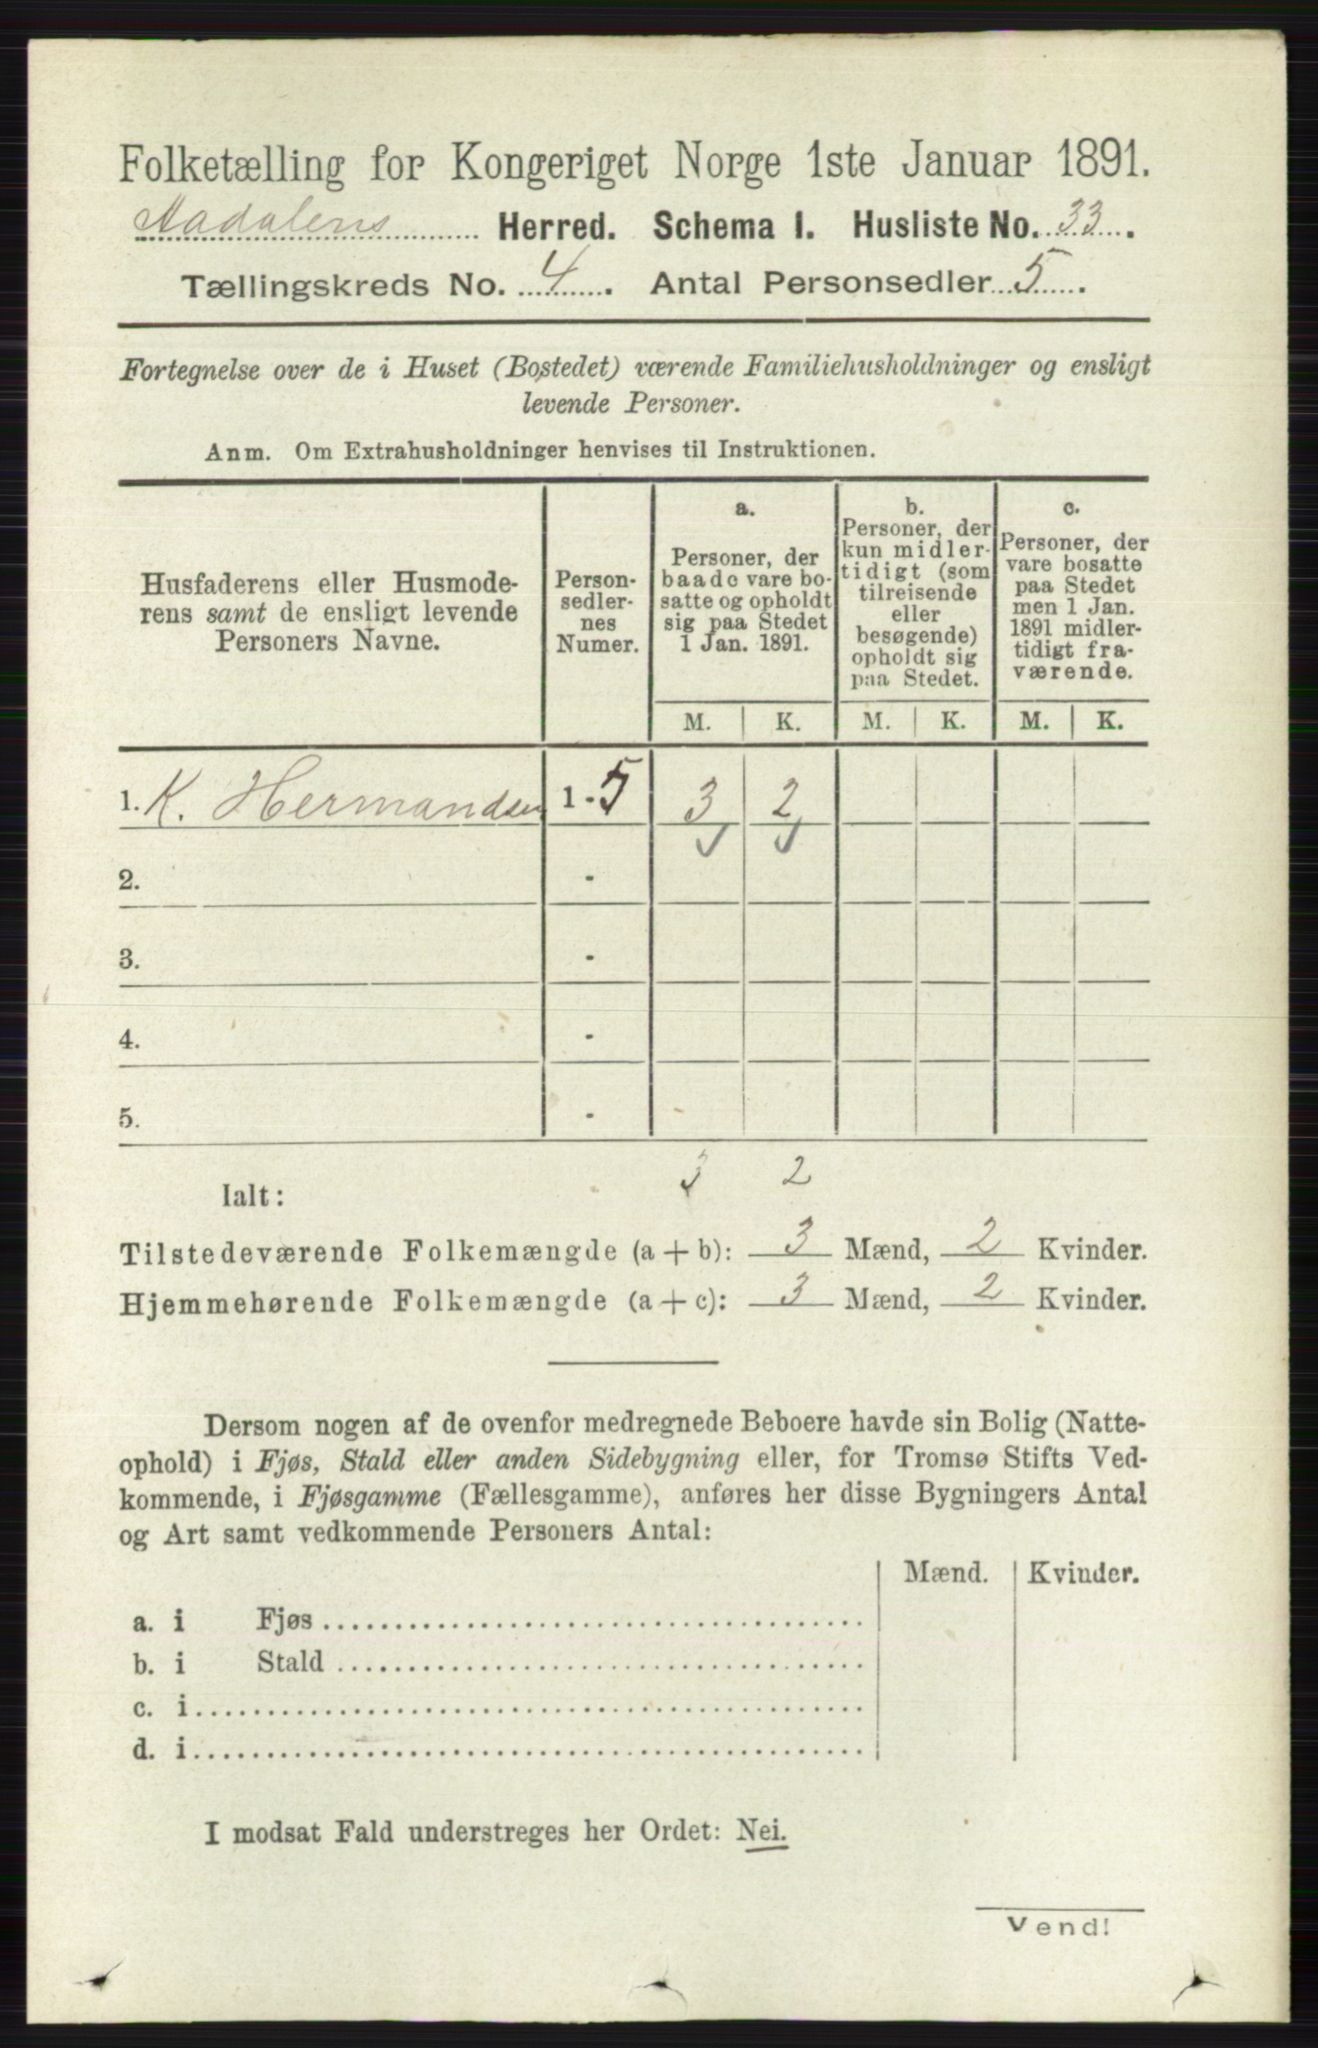 Folketælling for Kongeriget Norge 1ste Januar 1891.
Aadalens Herred. Schema I. Husliste No. 33.
Tællingskreds No. 4. Antal Personsedler 5.
Fortegnelse over de i Huset (Bostedet) værende Familiehusholdninger og ensligt
levende Personer.
Anm. Om Extrahusholdninger henvises til Instruktionen.
Husfaderens eller Husmode-
rens samt de ensligt levende
Personers Navne.
Person-
sedler-
nes
Numer.
a.
Personer, der
baade vare bo-
satte og opholdt
sig paa Stedet
1 Jan. 1891.
b.
Personer, der
kun midler-
tidigt (som
tilreisende
eller
besøgende)
opholdt sig
paa Stedet.
c.
Personer, der
vare bosatte
paa Stedet
men 1 Jan.
1891 midler-
tidigt fra-
værende.
M. K. M. K. M. K.
1. K. Hermandsen 1-5 3 2
2. -
3. -
4. -
5. -
Ialt: 3 2
Tilstedeværende Folkemængde (a + b): 3 Mænd, 2 Kvinder.
Hjemmehørende Folkemængde (a + c): 3 Mænd, 2 Kvinder.
Dersom nogen af de ovenfor medregnede Beboere havde sin Bolig (Natte-
ophold) i Fjøs, Stald eller anden Sidebygning eller, for Tromsø Stifts Ved-
kommende, i Fjøsgamme (Fællesgamme), anføres her disse Bygningers Antal
og Art samt vedkommende Personers Antal:
Mænd. Kvinder.
a. i Fjøs
b. i Stald
c. i
d. i
I modsat Fald understreges her Ordet: Nei.
Vend!